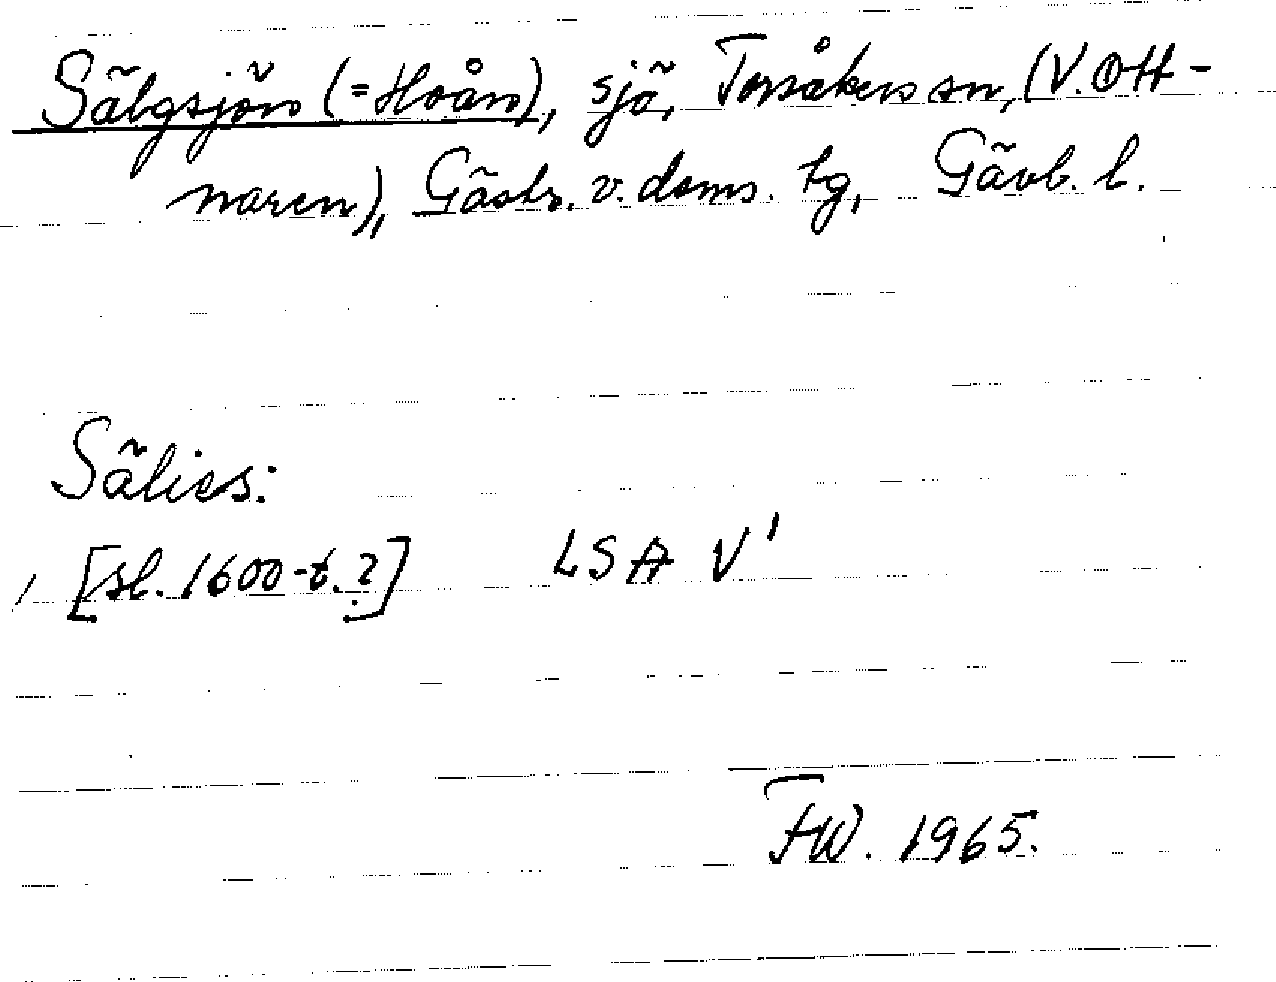 Sälgsjön (=Hoån), sjö, Torsåkers sn, (V. Ott-
naren), Gästr. v. doms. tg, Gävl. l.
Sälies:
[sl. 1600-t.?] LSA V¹
FW. 1965.